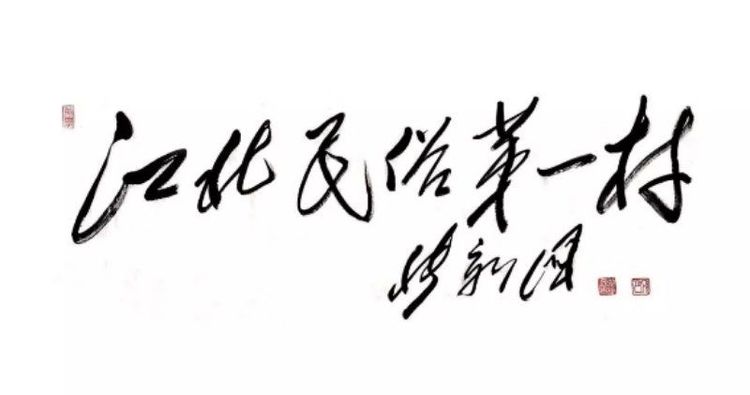 江北民俗第一村